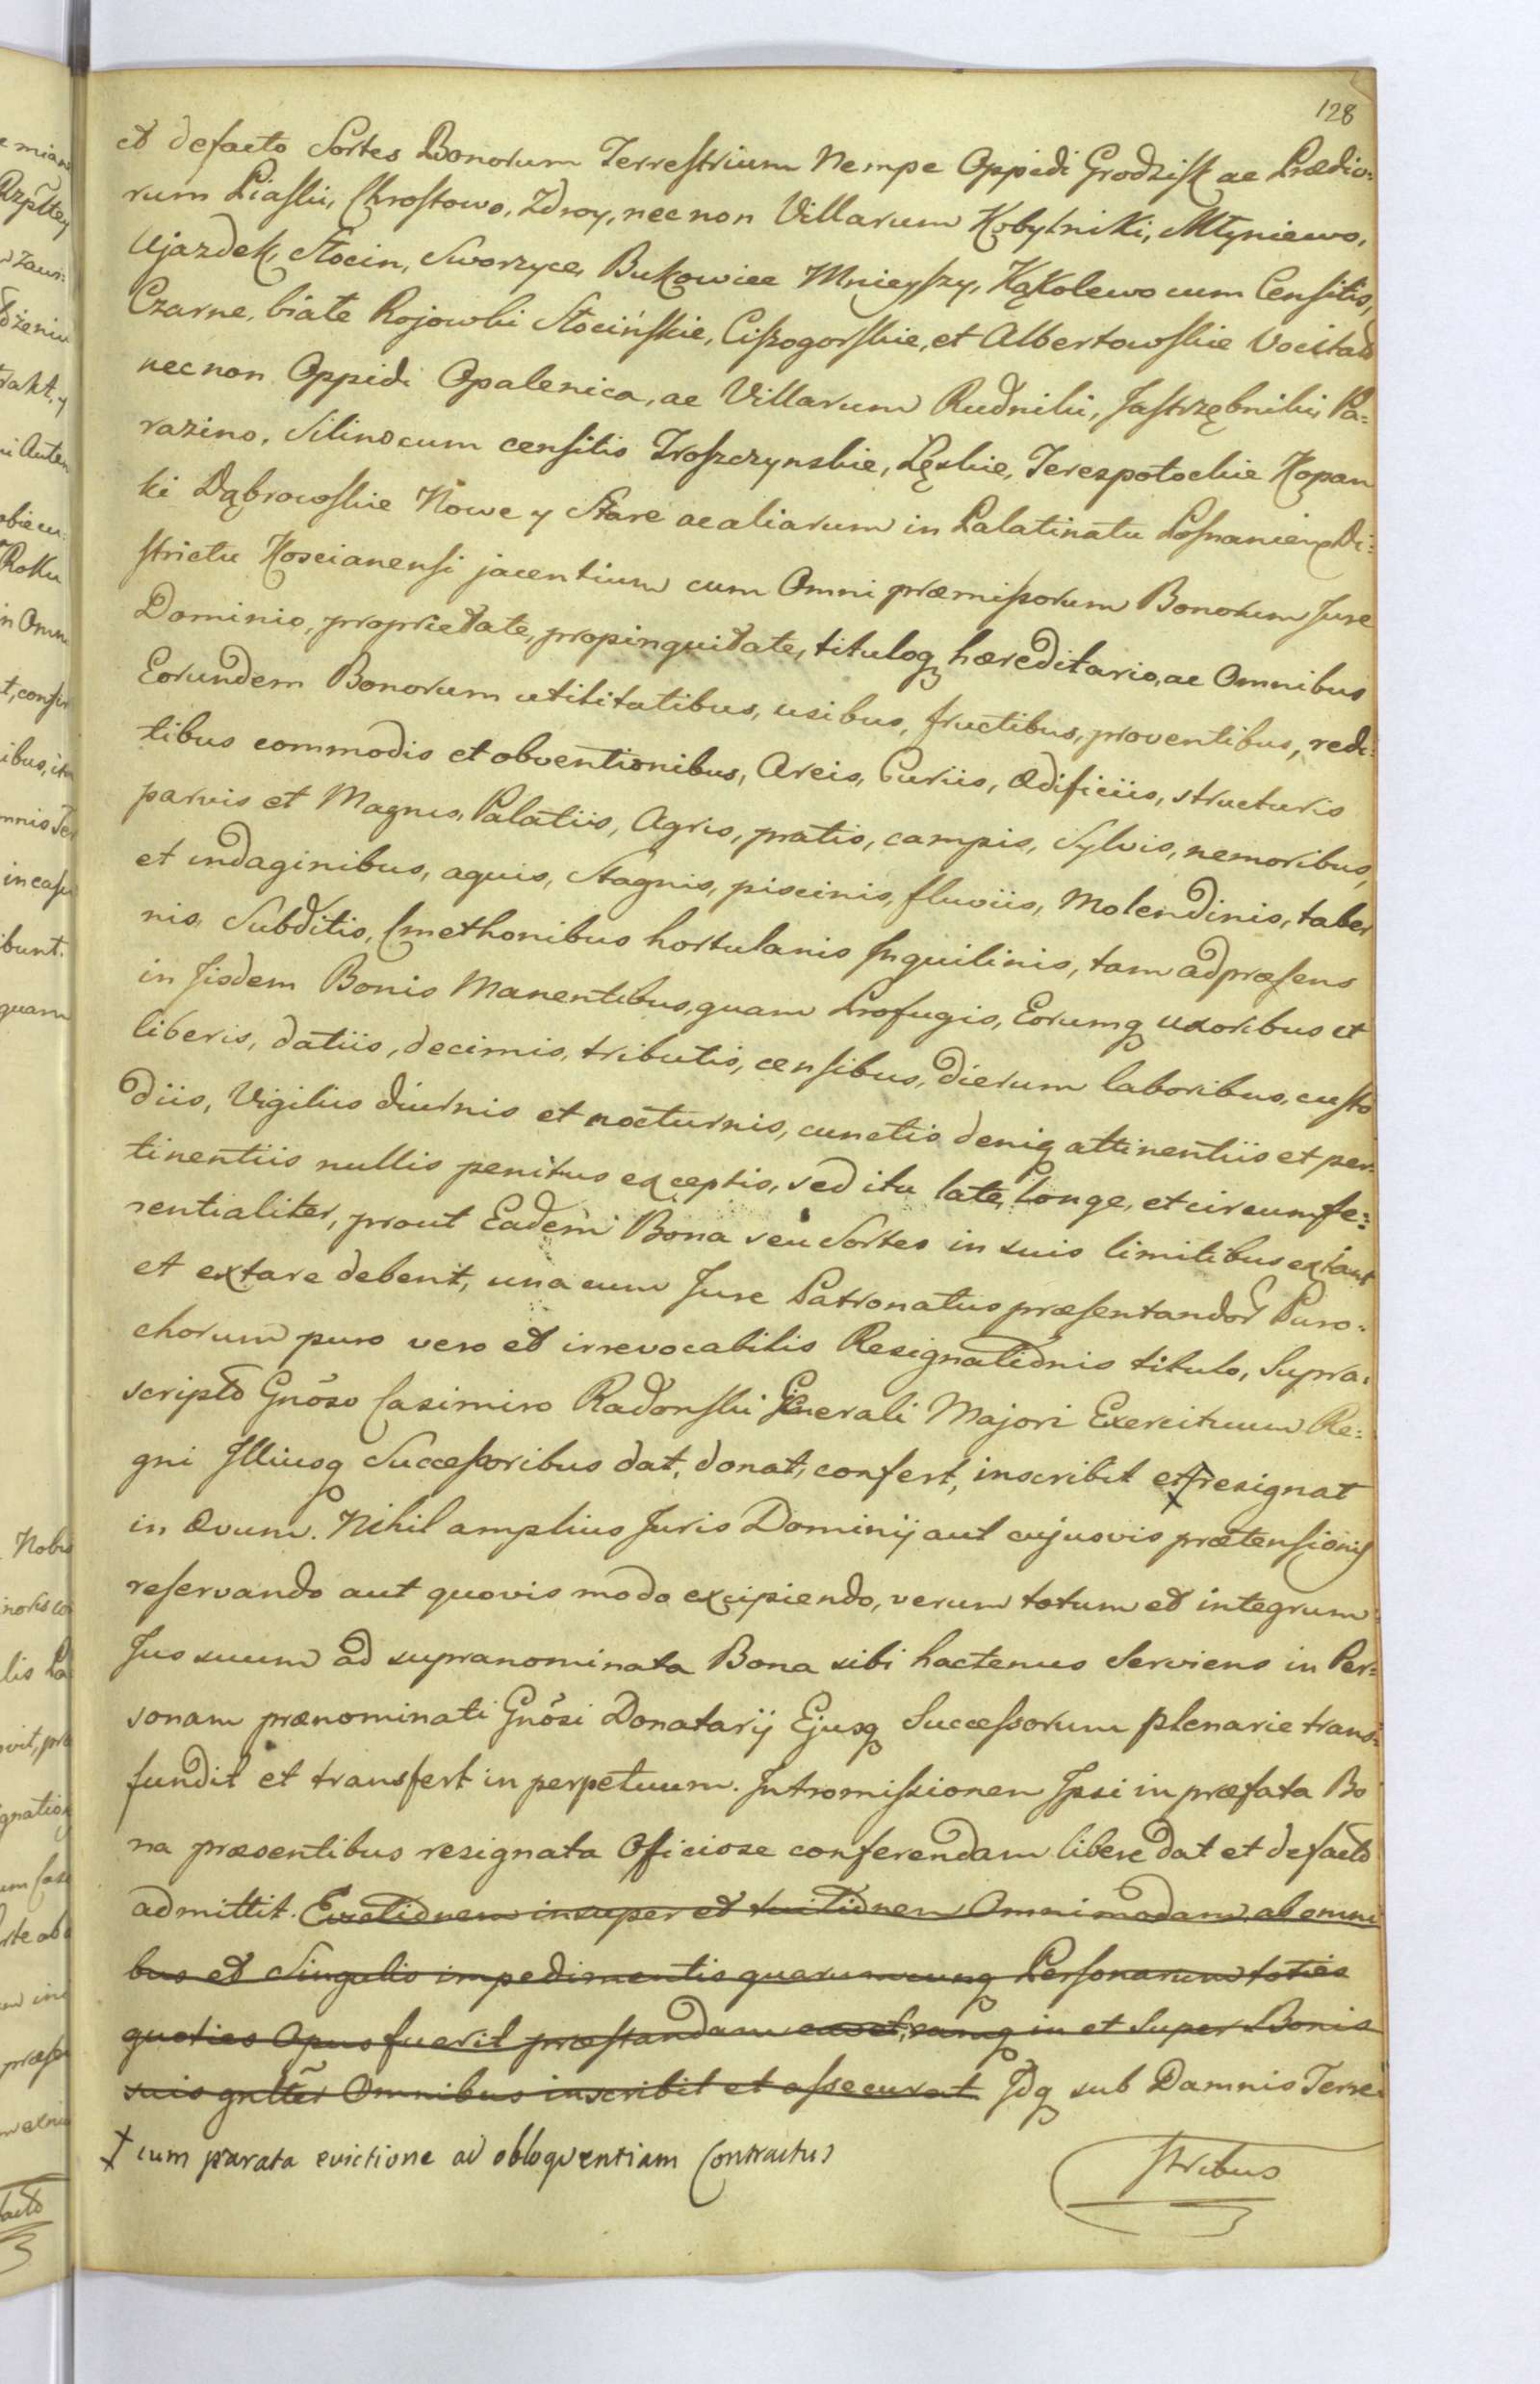 128
et defacto Sortes Bonorum Terrestrium Nempe Oppidi Grodzisk ac Prædio:
rum Piaski, Chrostowo, Zdroy, nec non Villarum Kobylniki, Młyniewo,
Ujazdek, Słocin, Sworzyce, Bukowiec Mnieyszy, Kąkolewo cum Censitis,
Czarne, białe Rojowki Słocińskie, Ciszogorskie, et Albertowskie Vocitatis
nec non Oppidi Opalenica, ac Villarum Rudniki, Jastrzębniki, Pa:
razino, Silino cum censitis Troszczynskie, Łęskie, Terespotockie Kopan
ki Dąbrowskie Nowe y Stare ac aliarum in Palatinatu Posnanien Di:
strictu Koscianensi jacentium cum Omni præmissorum Bonorum Jure
Dominio, proprietate, propinquitate, tituloq hæreditario, ac Omnibus
Eorundem Bonorum utilitatibus, usibus, fructibus, proventibus, redi:
tibus commodis et obventionibus, Areis, Curiis, Ædificiis, structuris
parvis et Magnis, Palatiis, Agris, pratis, campis, Sylvis, nemoribus,
et indaginibus, aquis, Stagnis, piscinis, fluviis, Molendinis, taber
nis, Subditis, Cmethonibus hortulanis Inquilinis, tam ad præsens
in Jisdem Bonis Manentibus, quam Profugis, Eorumq uxoribus et
liberis, datiis, decimis, tributis, censibus, dierum laboribus, custo
diis, Vigiliis diurnis et nocturnis, cunctis deniq attinentiis et per:
tinentiis nullis penitus exceptis, sed ita late, longe, et circumfe:
rentialiter, prout Eadem Bona seu Sortes in suis limitibus extant
et extare debent, una cum Jure Patronatus præsentandor Paro:
chorum puro vero et irrevocabilis Resignationis titulo, Supra:
scripto Gnõso Casimiro Radonski Generali Majori Exercituum Re:
gni Illiusq Successoribus dat, donat, confert, inscribit et resignat
in Ævum. Nihil amplius Juris Dominij aut cujusvis prætensionis
reservando aut quovis modo excipiendo, verum totum et integrum
Jus suum ad supranominata Bona sibi hactenus Serviens in Per:
sonam prænominati Gnõsi Donatarij Ejusq Successorum plenarie trans:
fundit et transfert in perpetuum. Intromissionem Ipsi in præfata Bo
na præsentibus resignata Officiose conferendam libere dat et defacto
admittit. Evictionem insuper et tuitionem Omnimodam, ab omni
bus et Singulis impedimentis quarumcunq Personarum toties
quoties Opus fuerit præstandam cavet, eamq in et Super Bonis
suis gnlter Omnibus inscribit et assecurat Idq sub Damnis Terre
stribus
☨ cum parata evictione ad obloquentiam Contractus